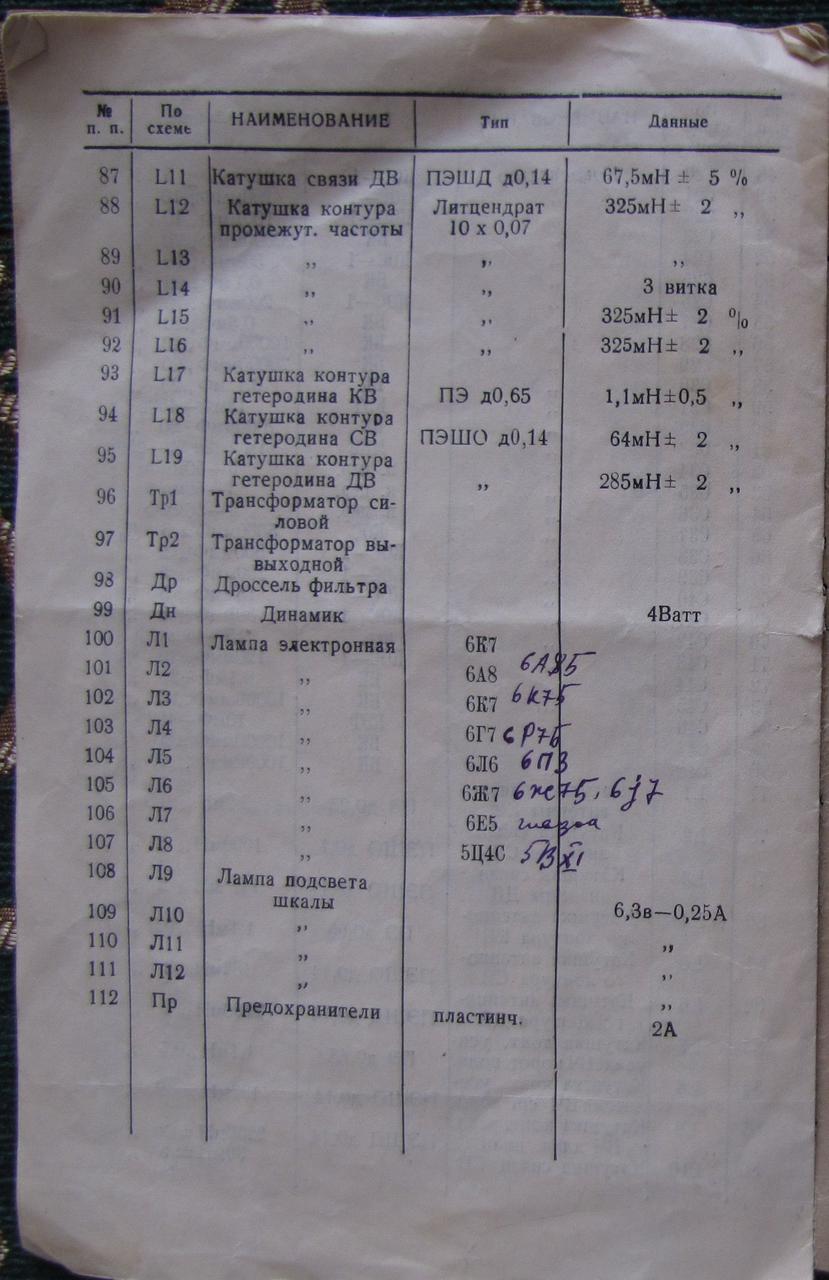 № п. п. По схеме НАИМЕНОВАНИЕ Тип Данные
87 L11 Катушка связи ДВ ПЭШД д0,14 67,5мН ± 5 %
88 L12 Катушка контура Литцендрат 325мН± 2 „
промежут. частоты 10 х 0,07
89 L13 „ „ „
90 L14 „ „ 3 витка
91 L15 „ „ 325мН± 2 %
92 L16 „ „ 325мН± 2 „
93 L17 Катушка контура
гетеродина КВ ПЭ д0,65 1,1мН±0,5 „
94 L18 Катушка контура
гетеродина СВ ПЭШО д0,14 64мН± 2 „
95 L19 Катушка контура
гетеродина ДВ „ 285мН± 2 „
96 Тр1 Трансформатор си-
ловой
97 Тр2 Трансформатор вы-
выходной
98 Др Дроссель фильтра
99 Дн Динамик 4Ватт
100 Л1 Лампа электронная 6К7
101 Л2 „ 6А8
102 Л3 „ 6К7 6К7Б
103 Л4 „ 6Г7
104 Л5 „ 6Л6 6П3
105 Л6 „ 6Ж7 6Ж7Б, 6j7
106 Л7 „ 6Е5
107 Л8 „ 5Ц4С
108 Л9 Лампа подсвета
шкалы 6,3в—0,25А
109 Л10 „ „
110 Л11 „ „
111 Л12 „ „
112 Пр Предохранители пластинч. 2А